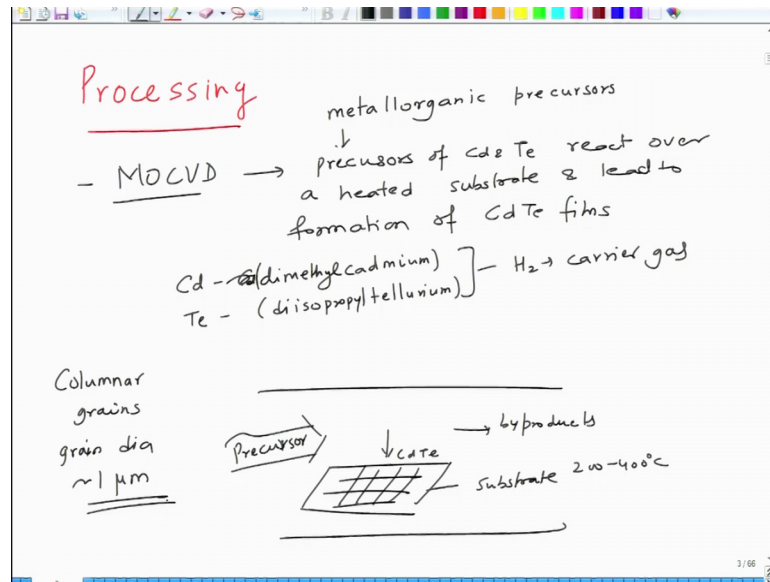 Processing
metallorganic precursors
↓
- MOCVD → precusors of Cd & Te react over
a heated substrate & lead to
formation of CdTe films
Cd - (dimethylcadmium)
Te - (diisopropyltellurium)
- H2 → carrier gas
Columnar
grains
grain dia
~1 μm
Precursor
↓ CdTe
→ byproducts
substrate 200-400°C
3 / 66